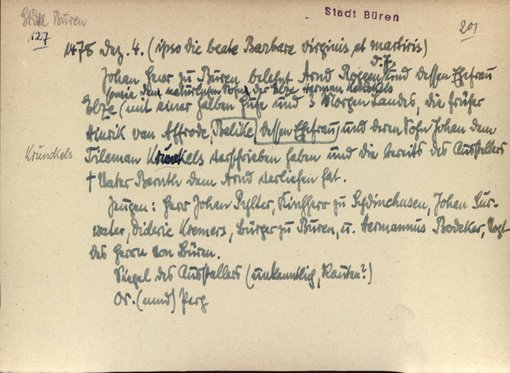 Stdt Büren
127
Stadt Büren
201
1478 Dez. 4. (ipso die beate Barbare virginis et martiris)
d. J.
Johan Herr zu Büren belehnt Arnd Roggen und dessen Ehefrau
sowie den natürlichen Sohn der Elze Herman
Elze (mit einer halben Hufe und 3 Morgen Landes, die früher
Hinrik van Affrode, Belike, dessen Ehefrau, und deren Sohn Johan dem
Krunckels
Tileman Krunckels verschrieben haben und die bereits des Ausstellers
† Vater Bernth dem Arnd verliehen hat.
Zeugen: Herr Johan Kirchherr zu Johan Sur-
water, Dideric Kremers, Bürger zu Büren, u. Hermannus Bodeker, Vogt
des Herrn von Büren.
Siegel des Ausstellers (unkenntlich, Rauten?)
Or. (mnd) Perg